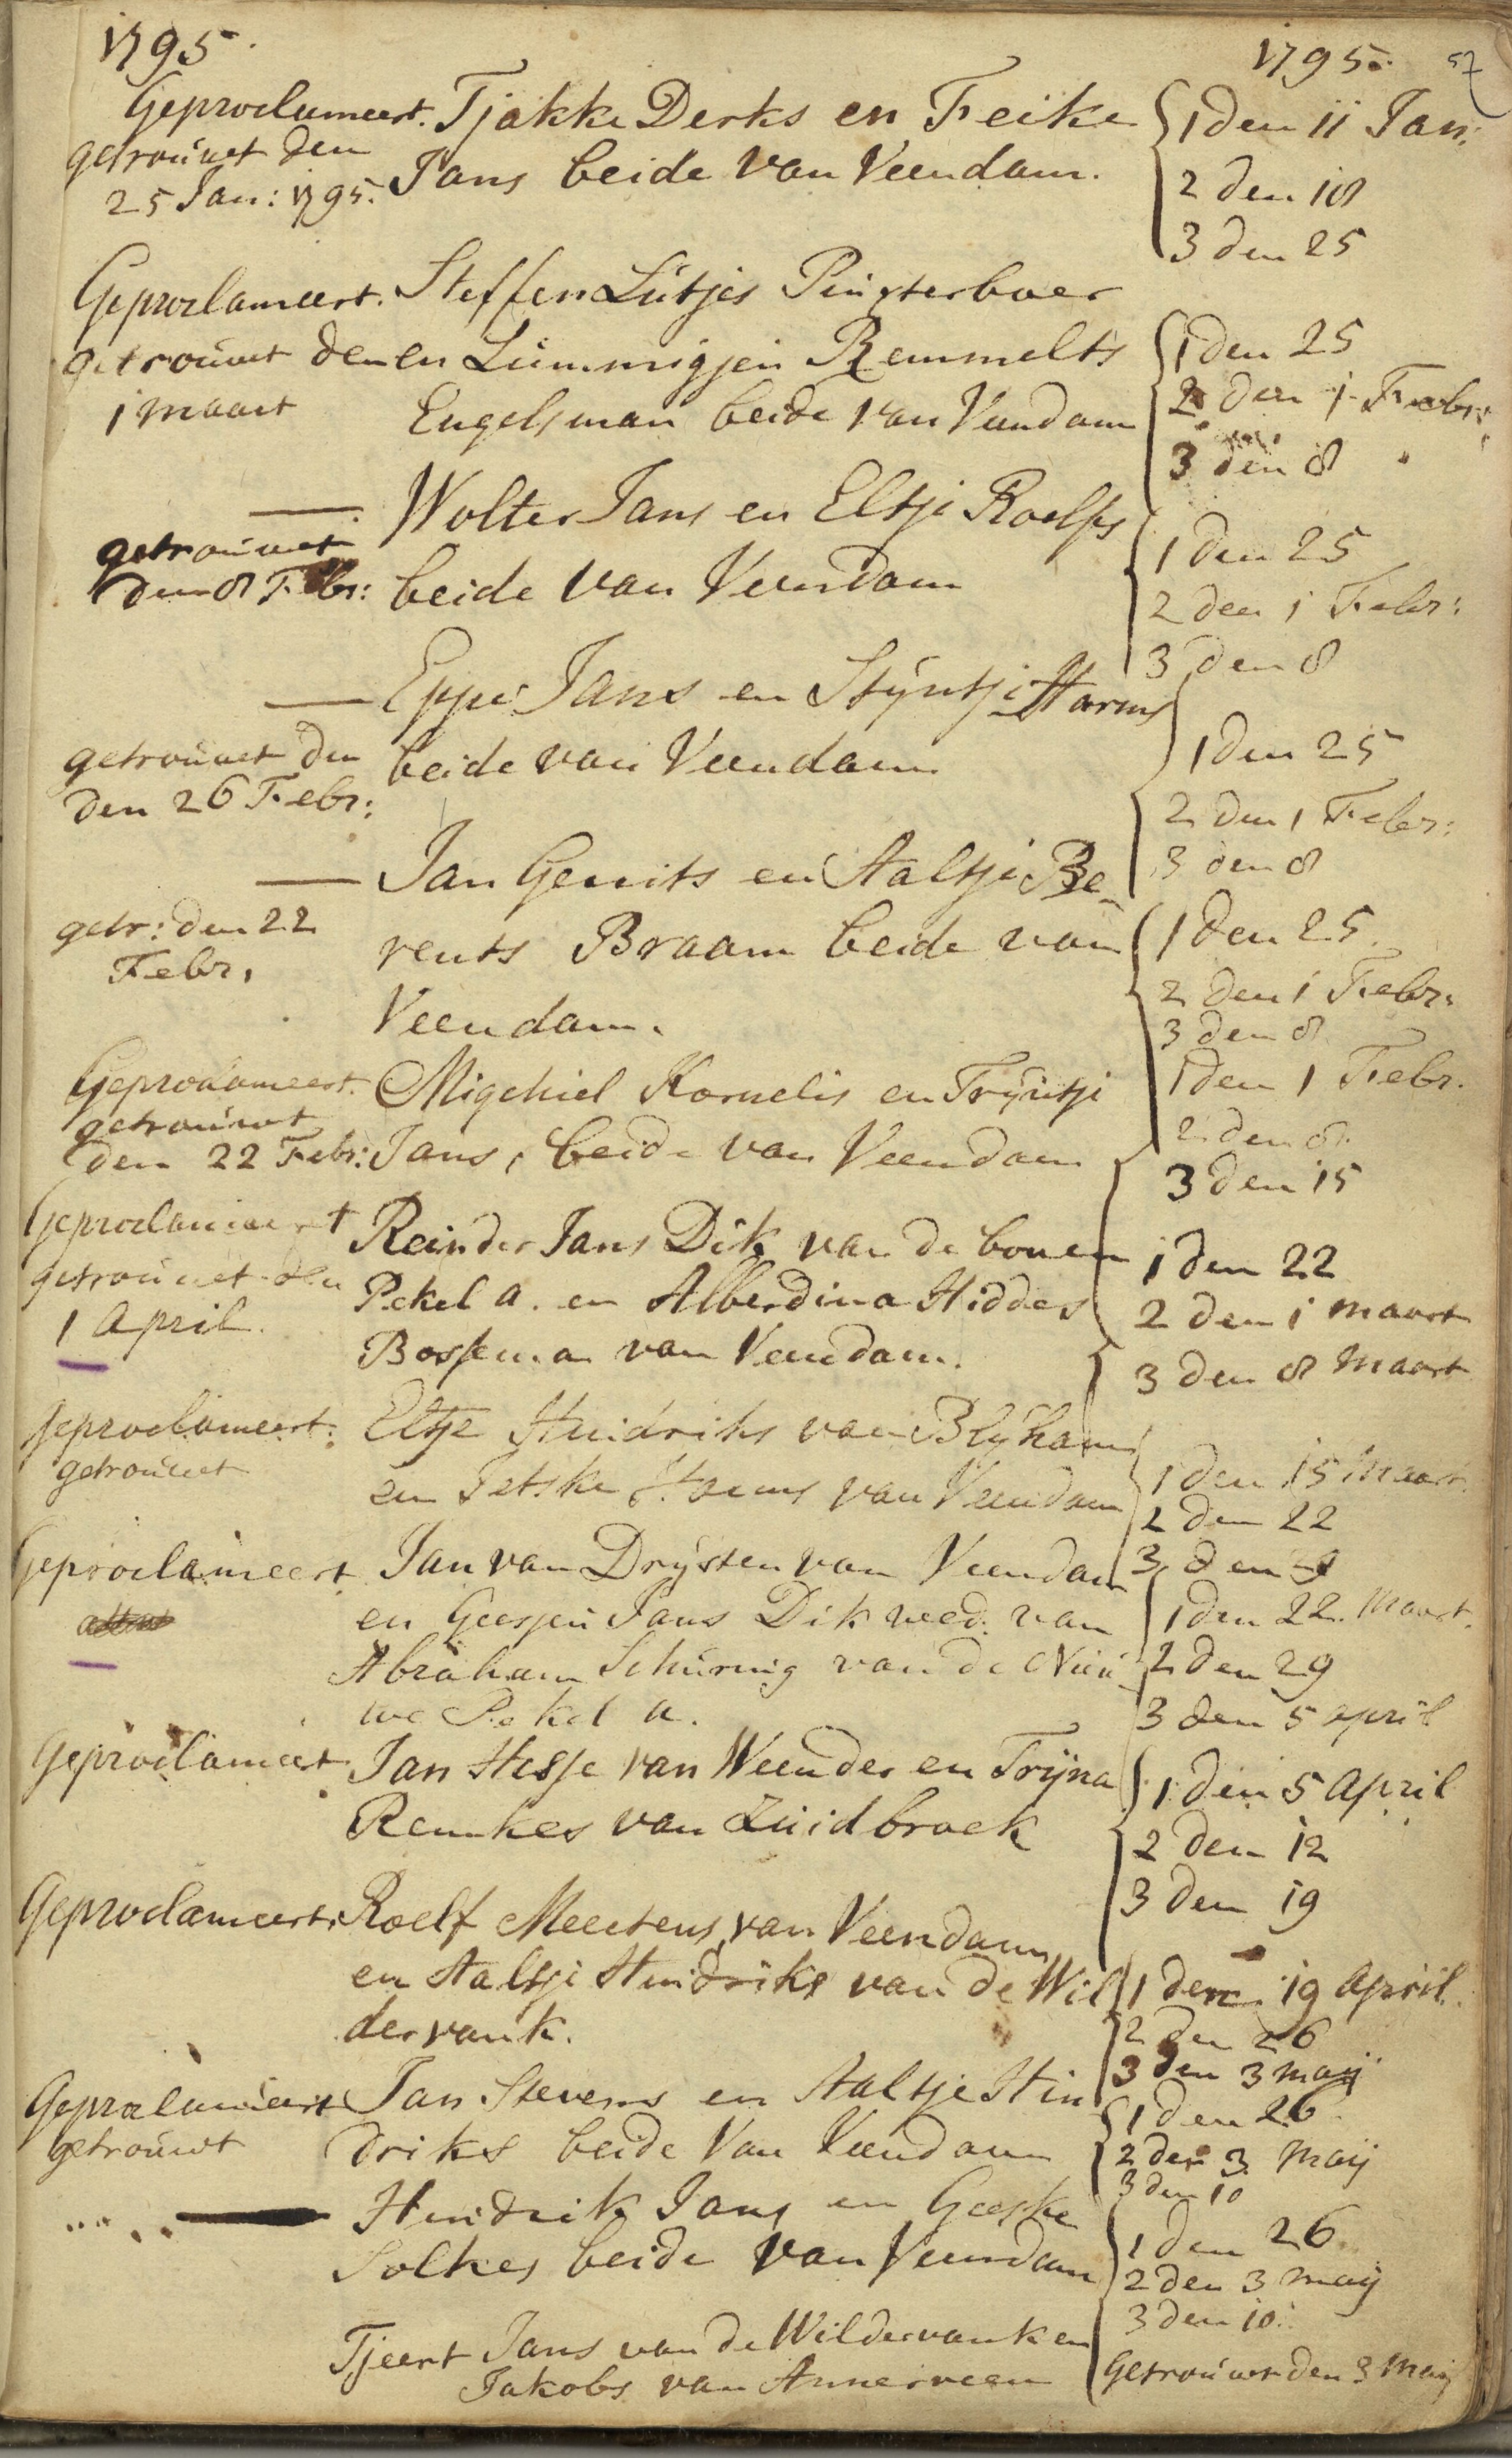 1795.
1795.
57
Geproclameert. Tjakke Derks en Feike
1 den 11 Jan:
getrouwet den
25 Jan: 1795.
Jans beide van Veendam.
2 den 18
3 den 25
Geproclameert. Steffen Lútjes Pinxterboer
getrouwet den
1 maart
en Lúmmigjen Remmelts
1 den 25
Engelsman beide van Veendam
2 den 1 Febr:
3 den 8
— Wolter Jans en Eltje Roelfs
getrouwet
den 8 Febr:
beide van Veendam
1 den 25
2 den 1 Febr:
3 den 8
— Eppe Jans en Stijntje Harms
getrouwet den
den 26 Febr:
beide van Veendam
1 den 25
2 den 1 Febr:
3 den 8
— Jan Gerrits en Aaltje Be-
getr: den 22
Febr,
rents Braam beide van
Veendam.
1 den 25
2 den 1 Febr:
3 den 8
Geproclameert. Migchiel Kornelis en Trijntje
getrouwt
den 22 Febr:
Jans, beide van Veendam
1 den 1 Febr.
2 den 8.
3 den 15
Geproclameert
getrouwet den
1 April.
Reinder Jans Dik van de boven
Pekel a. en Alberdina Hiddes
Bossema van Veendam.
1 den 22
2 den 1 maart
3 den 8 maart
Geproclameert.
getrouwet
Eltje Hindriks van Blijham
en Jetske Harms van Veendam
1 den 15 Maart.
2 den 22
3 den
Geproclameert
Jan van Drijsten van Veendam
en Geesjen Jans Dik wed. van
Abraham Schúring van de Nieú-
we Pekel a.
1 den 22. Maart.
2 den 29
3 den 5 april
Geproclameert
Jan Hesse van Weender en Trijna
Remkes van Zúidbroek
1 den 5 April
2 den 12
3 den 19
Geproclameert. Roelf Meertens van Veendam
en Aaltje Hindriks van de Wil
dervank.
1 den 19 April.
2 den 26
3 den 3 maij
Geproclameert
getrouwt
Jan Stevens en Aaltje Hin
driks beide van Veendam
1 den 26
2 den 3 Maij
3 den 10
— Hindrik Jans en Geeske
Solkes beide van Veendam
1 den 26
2 den 3 maij
3 den 10.
Tjeert Jans van de Wildervank en
Jakobs van Annerveen
Getrouwet den 3 Maij